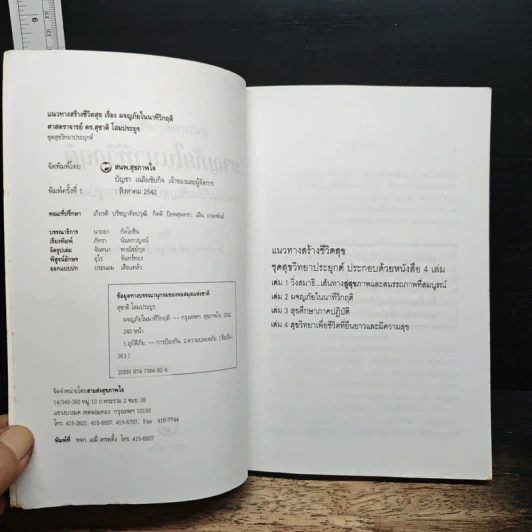 แนวทางสร้างชีวิตสุข เรื่อง ผจญภัยในนาทีวิกฤติ
ศาสตราจารย์ ดร.สุชาติ โสมประยูร
ชุดสุขวิทยาประยุกต์
จัดพิมพ์โดย สนพ.สุขภาพใจ
บัญชา เฉลิมชัยกิจ เจ้าของและผู้จัดการ
พิมพ์ครั้งที่ 1 สิงหาคม 2542
คณะที่ปรึกษา
บรรณาธิการ
เรียงพิมพ์
จัดรูปเล่ม
พิสูจน์อักษร อุไร จันทร์ทอง
ออกแบบปก ประนอม เสือแคล้ว
ข้อมูลทางบรรณานุกรมของหอสมุดแห่งชาติ
สุชาติ โสมประยูร
ผจญภัยในนาทีวิกฤติ.-- กรุงเทพฯ : สุขภาพใจ, 2542
240 หน้า
1.อุบัติภัย -- การป้องกัน. 2.ความปลอดภัย. I.ชื่อเรื่อง.
363.1
ISBN 974-7364-82-4
จัดจำหน่ายโดยสายส่งสุขภาพใจ
14/349-350 หมู่ 10 ถ.พระราม 2 ซอย 38
แขวงบางมด เขตจอมทอง กรุงเทพฯ 10150
โทร. 415-2621, 415-6507, 415-6797, Fax 415-7744
พิมพ์ที่ หจก. เอมี่ เทรดดิ้ง โทร. 415-6507
แนวทางสร้างชีวิตสุข
ชุดสุขวิทยาประยุกต์ ประกอบด้วยหนังสือ 4 เล่ม
เล่ม 1 วิ่งสมาธิ...เส้นทางสู่สุขภาพและสมรรถภาพที่สมบูรณ์
เล่ม 2 ผจญภัยในนาทีวิกฤติ
เล่ม 3 สุขศึกษาภาคปฏิบัติ
เล่ม 4 สุขวิทยาเพื่อชีวิตที่ยืนยาวและมีความสุข